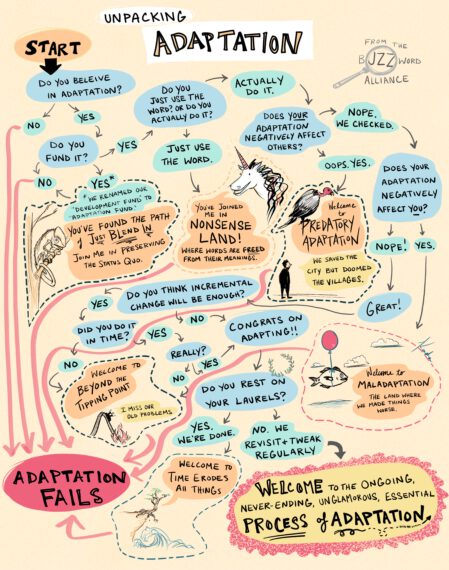 UNPACKING
ADAPTATION
FROM THE
BUZZ WORD
ALLIANCE
START
DO YOU BELEIVE
IN ADAPTATION?
NO
YES
DO YOU
FUND IT?
YES
NO
YES*
*WE RENAMED OUR
"DEVELOPMENT FUND TO
"ADAPTATION FUND."
YOU'VE FOUND THE PATH
I JUST BLEND IN
JOIN ME IN PRESERVING
THE STATUS QUO.
DO YOU
JUST USE THE
WORD? OR DO YOU
ACTUALLY DO IT?
ACTUALLY
DO IT.
JUST USE
THE WORD.
YOU'VE JOINED
ME IN
NONSENSE
LAND!
WHERE WORDS ARE FREED
FROM THEIR MEANINGS.
DOES YOUR
ADAPTATION
NEGATIVELY AFFECT
OTHERS?
NOPE.
WE CHECKED.
OOPS. YES.
WELCOME
TO
PREDATORY
ADAPTATION
WE SAVED THE
CITY BUT DOOMED
THE VILLAGES.
DOES YOUR
ADAPTATION
NEGATIVELY
AFFECT YOU?
NOPE!
YES.
GREAT!
DO YOU THINK INCREMENTAL
CHANGE WILL BE ENOUGH?
YES
NO
DID YOU DO IT
IN TIME?
YES
REALLY?
NO
YES
NO
CONGRATS ON
ADAPTING!!
WELCOME TO
BEYOND THE
TIPPING POINT
I MISS OUR
OLD PROBLEMS.
WELCOME TO
MALADAPTATION
THE LAND WHERE
WE MADE THINGS
WORSE.
DO YOU REST ON
YOUR LAURELS?
YES,
WE'RE DONE.
NO. WE
REVISIT + TWEAK
REGULARLY
WELCOME TO
TIME ERODES
ALL THINGS
ADAPTATION
FAILS
WELCOME TO THE ONGOING,
NEVER-ENDING, UNGLAMOROUS, ESSENTIAL
PROCESS OF ADAPTATION.